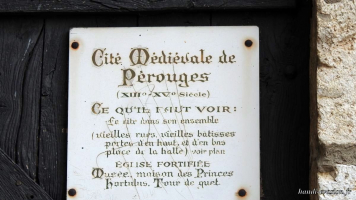 Cité Médiévale de
Pérouges
(XIIIº-XVº Siècle)
CE QU'IL FAUT VOIR:
Le cité dans son ensemble
(Vieilles rues, vieilles batisses
portes d'en haut, et d'en bas
place de la halle) voir plan
ÉGLISE FORTIFIÉE
Musée, maison des Princes
Hortulus, Tour de guet.